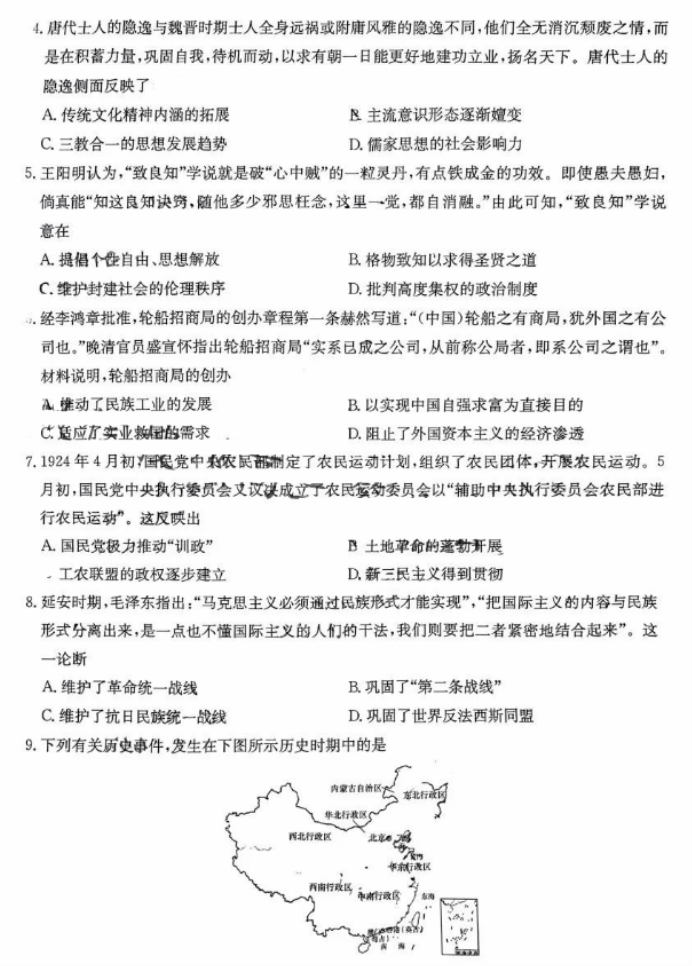 4. 唐代士人的隐逸与魏晋时期士人全身远祸或附庸风雅的隐逸不同,他们全无消沉颓废之情,而
是在积蓄力量,巩固自我,待机而动,以求有朝一日能更好地建功立业,扬名天下。唐代士人的
隐逸侧面反映了
A. 传统文化精神内涵的拓展 B. 主流意识形态逐渐嬗变
C. 三教合一的思想发展趋势 D. 儒家思想的社会影响力
5. 王阳明认为,“致良知”学说就是破“心中贼”的一粒灵丹,有点铁成金的功效。即使愚夫愚妇,
倘真能“知这良知诀窍,随他多少邪思枉念,这里一觉,都自消融。”由此可知,“致良知”学说
意在
A. 提倡个性自由、思想解放 B. 格物致知以求得圣贤之道
C. 维护封建社会的伦理秩序 D. 批判高度集权的政治制度
. 经李鸿章批准,轮船招商局的创办章程第一条赫然写道:“(中国)轮船之有商局,犹外国之有公
司也。”晚清官员盛宣怀指出轮船招商局“实系已成之公司,从前称公局者,即系公司之谓也”。
材料说明,轮船招商局的创办
A. 推动了民族工业的发展 B. 以实现中国自强求富为直接目的
C. 适应了实业救国的需求 D. 阻止了外国资本主义的经济渗透
7. 1924 年 4 月初,国民党中央农民部制定了农民运动计划,组织了农民团体,开展农民运动。5
月初,国民党中央执行委员会又议决成立了农民运动委员会以“辅助中央执行委员会农民部进
行农民运动”。这反映出
A. 国民党极力推动“训政” B 土地革命的蓬勃开展
工农联盟的政权逐步建立 D. 新三民主义得到贯彻
8. 延安时期,毛泽东指出:“马克思主义必须通过民族形式才能实现”,“把国际主义的内容与民族
形式分离出来,是一点也不懂国际主义的人们的干法,我们则要把二者紧密地结合起来”。这
一论断
A. 维护了革命统一战线 B. 巩固了“第二条战线”
C. 维护了抗日民族统一战线 D. 巩固了世界反法西斯同盟
9. 下列有关历史事件,发生在下图所示历史时期中的是
内蒙古自治区
东北行政区
华北行政区
西北行政区
北京
华东行政区
西南行政区
中南行政区
东海
南海